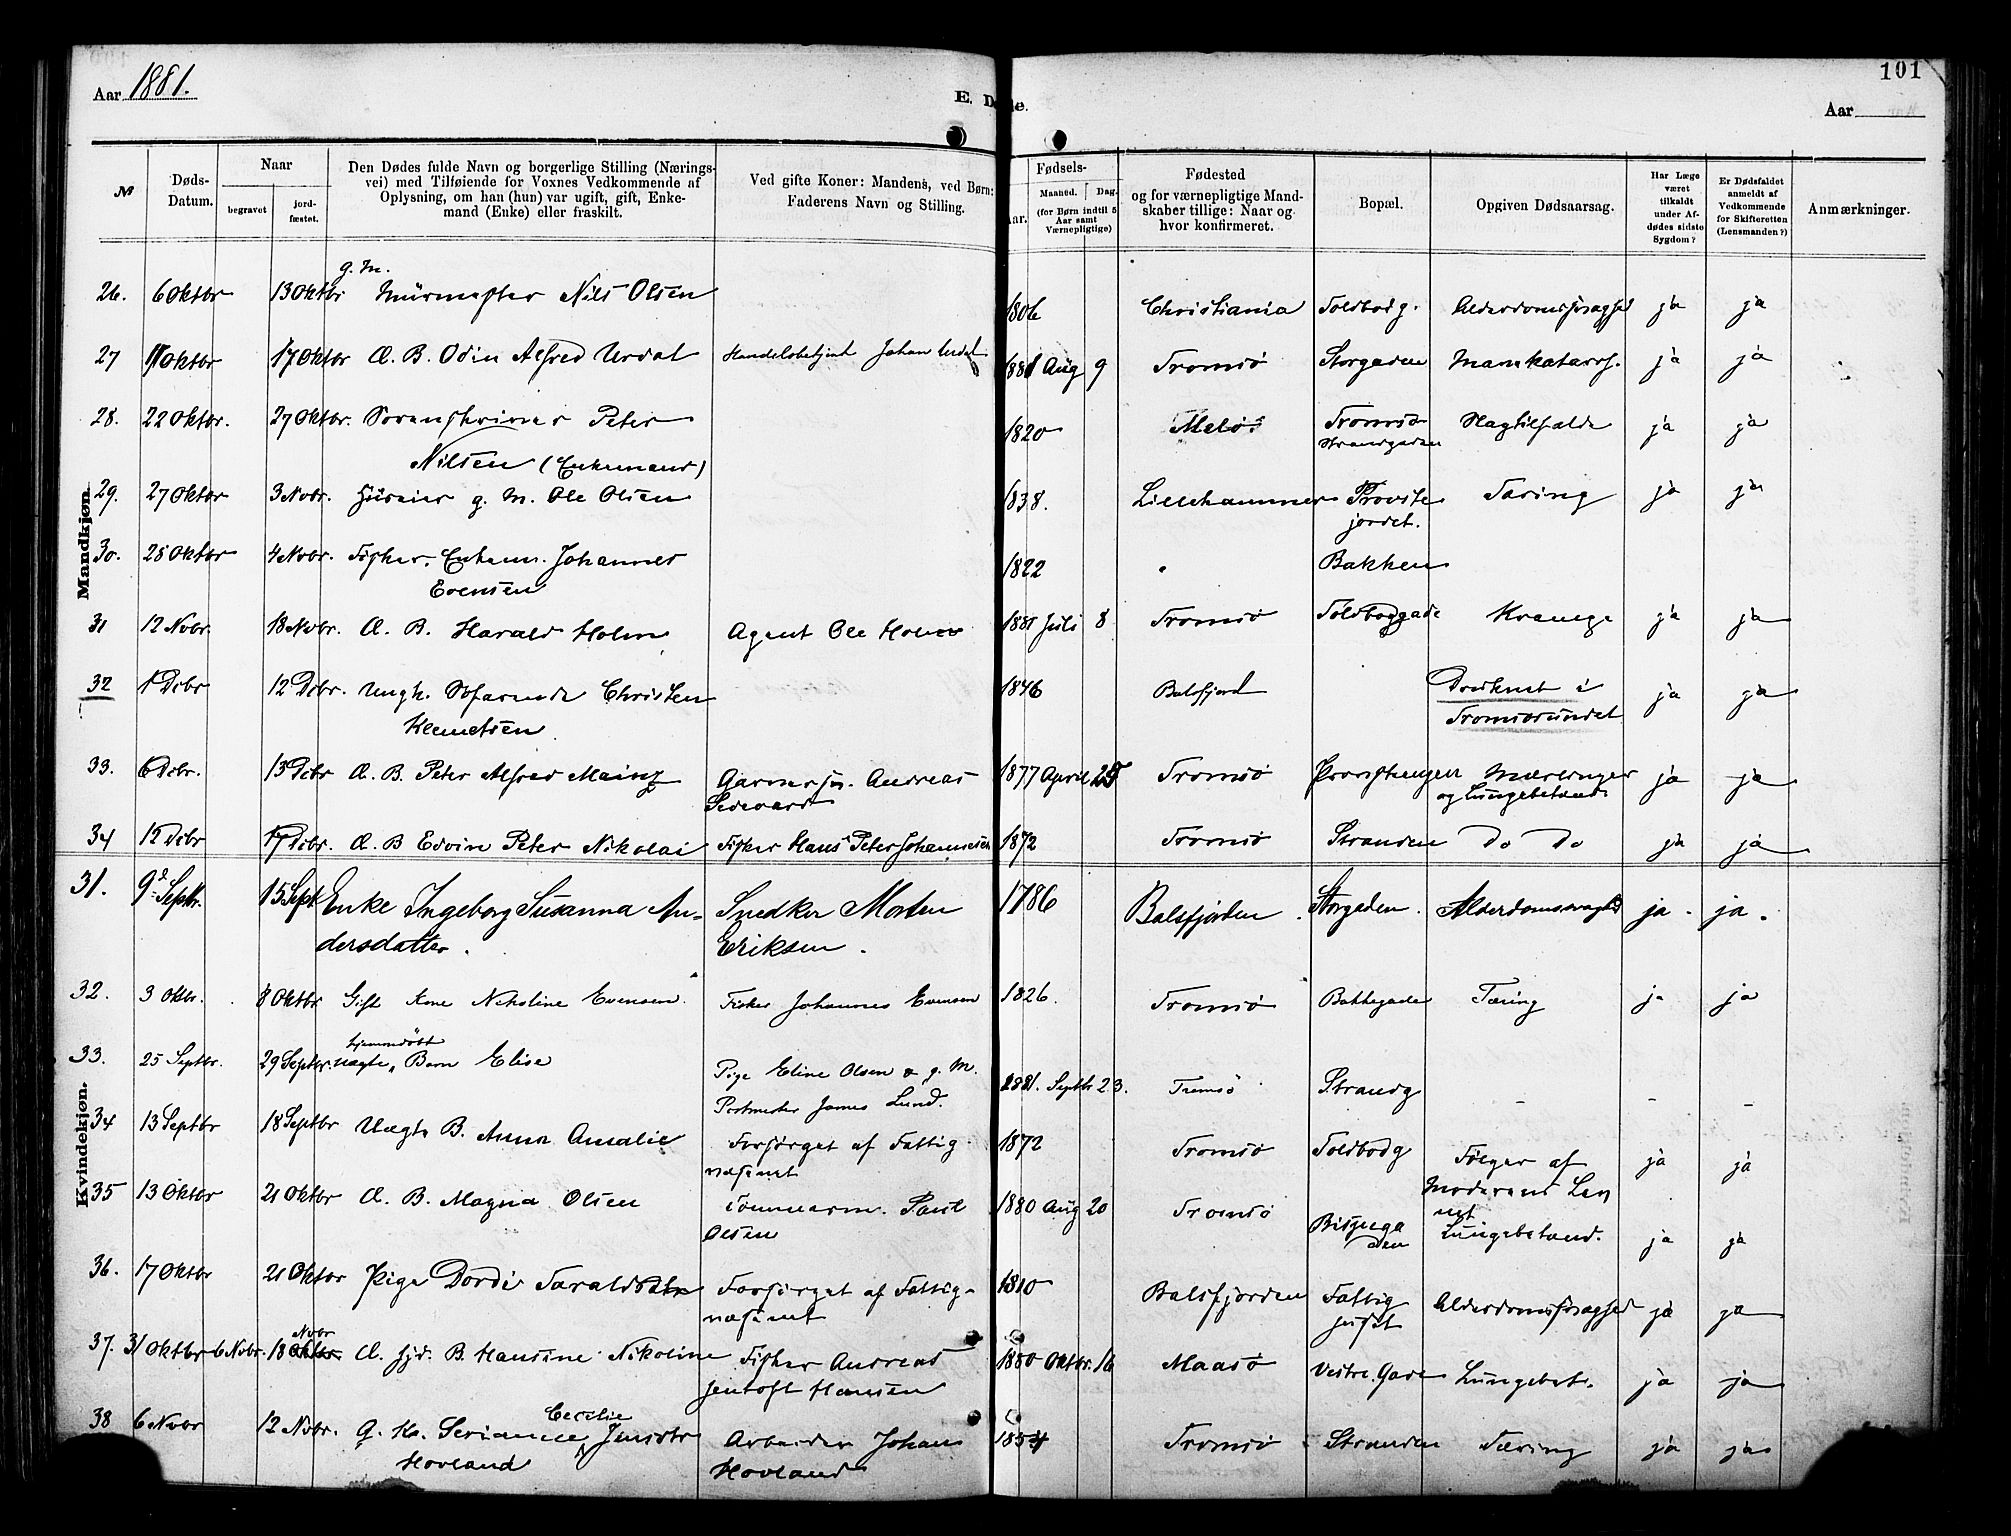 Aar 1881.
E. Døde.
101
Aar
№
Døds-
Datum.
Naar
begravet
jord-
fæstet.
Den Dødes fulde Navn og borgerlige Stilling (Nærings-
vei) med Tilføiende for Voxnes Vedkommende af
Oplysning, om han (hun) var ugift, gift, Enke-
mand (Enke) eller fraskilt.
Ved gifte Koner: Mandens, ved Børn:
Faderens Navn og Stilling.
Fødsels-
Aar.
Maaned.
Dag.
(for Børn indtil 5
Aar samt
Værnepligtige)
Fødested
og for værnepligtige Mand-
skaber tillige: Naar og
hvor konfirmeret.
Bopæl.
Opgiven Dødsaarsag.
Har Læge
været
tilkaldt
under Af-
dødes sidste
Sygdom?
Er Dødsfaldet
anmeldt af
Vedkommende
for Skifteretten
(Lensmanden?)
Anmærkninger.
Mandkjøn.
g. M.
26. 6 Oktbr 13 Oktbr Mürmester Nils Olsen 1806 Christiania Toldbodg. Alderdomssvaghed ja ja
27 11 Oktbr 17 Oktbr Æ. B. Odin Alfred Urdal Handelsbetjent Johan Urdal 1881 Aug 9 Tromsø Storgaden ja ja
28. 22 Oktbr. 27 Oktbr. Sorenskriver Peter 1820 Melø Tromsø Slagtilfælde ja ja
Strandgaden
Nilsen (Enkemand)
29. 27 Oktbr 3 Novbr. g. M. Ole Olsen 1838. Lillehammer Provste Tæring ja ja
jordet.
30. 28 Oktbr 4 Novbr. Fisker, Enkem. Johannes 1822 Bakken
Evensen
31 12 Novbr. 18 Novbr. Æ. B. Harald Holm Agent Ole Holm 1881 Juli 8 Tromsø Toldbodgade Krampe ja ja
32 1 Dcbr 12 Dcbr. Ungk. Søfarende Christen 1846 Balsfjord Druknet i ja ja
Klemetsen Tromsøsundet
33. 6 Dcbr. 13 Dcbr Æ. B. Peter Alfred Mainz Garversv. Andreas 1877 April 25 Tromsø Mæslinger ja ja
og Lungebetænd.
34 12 Dcbr 17 Dcbr. Æ. B Edvin Peter Nikolai Fisker Hans Peter Johannesen 1872 Tromsø Stranden Do Do ja ja
Kvindekjøn.
31. 9d Septbr. 15 Sept Enke Ingeborg Susanna An- Snedker Morten 1786 Balsfjorden. Storgaden. Alderdomssvaghed ja. ja.
dersdatter. Eriksen.
32. 3 Oktbr. 8 Oktbr Gift Kone Nikoline Evensen. Fisker Johannes Evensen 1826. Tromsø Bakkegade Tæring ja ja
hjemmedøbt
33. 25 Septbr. 29 Septbr. uægte Barn Elise Pige Eline Olsen & g. M. 1881. Septbr 23. Tromsø Strandg - - -
Postmester James Lund.
34 13 Septbr 18 Septbr Uægte B. Anna Amalie Forsørget af Fattig- 1872 Tromsø Toldbodg Følger af ja ja
væsenet
35 13 Oktbr 21 Oktbr Æ. B. Magna Olsen Tømmerm. Paul 1880 Aug 20 Tromsø Bispega Lungebetænd. ja ja
Olsen den
36. 17 Oktbr 21 Oktbr Pige Dordi Taraldsdtr Forsørget af Fattig- 1810 Balsfjorden Fattig Alderdomssvaghed ja ja
væsenet huset
37. 31 Oktbr 6 Novbr. 18 Oktbr Novbr Æ. hjd. B. Hansine Nikoline Fisker Andreas 1880 Oktbr. 16 Maasø Vestre Gade Lungebet. ja ja
Jentoft Hansen
38 6 Novbr 12 Novbr. G. K. Serianne Cecilie Jensdtr Arbeider Johan 1854 Tromsø Stranden Tæring ja ja
Hovland Hovland